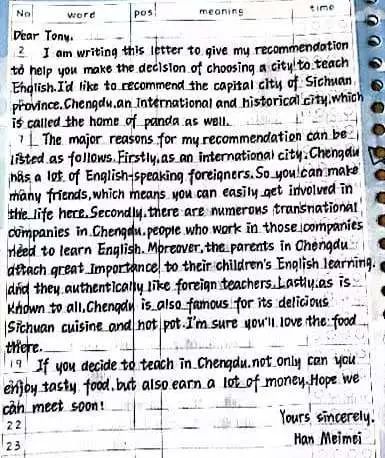 No word pos meaning time
Dear Tony.
2 I am writing this letter to give my recommendation
to help you make the decision of choosing a city to teach
English.I'd like to recommend the capital city of Sichuan
province.Chengdu.an international and historical city,which
is called the home of panda as well.
7 The major reasons for my recommendation can be
listed as follows.Firstly,as an international city,Chengdu
has a lot of English-speaking foreigners.So you can make
many friends,which means you can easily get involved in
the life here.Secondly,there are numerous transnational
companies in Chengdu,people who work in those companies
need to learn English. Moreover,the parents in Chengdu
attach great importance to their children's English learning.
and they authentically like foreign teachers.Lastly,as is
known to all,Chengdu is also famous for its delicious
Sichuan cuisine and hot pot.I'm sure you'll love the food
there.
19 If you decide to teach in Chengdu.not only can you
enjoy tasty food,but also earn a lot of money.Hope we
can meet soon!
22 Yours sincerely.
23 Han Meimei